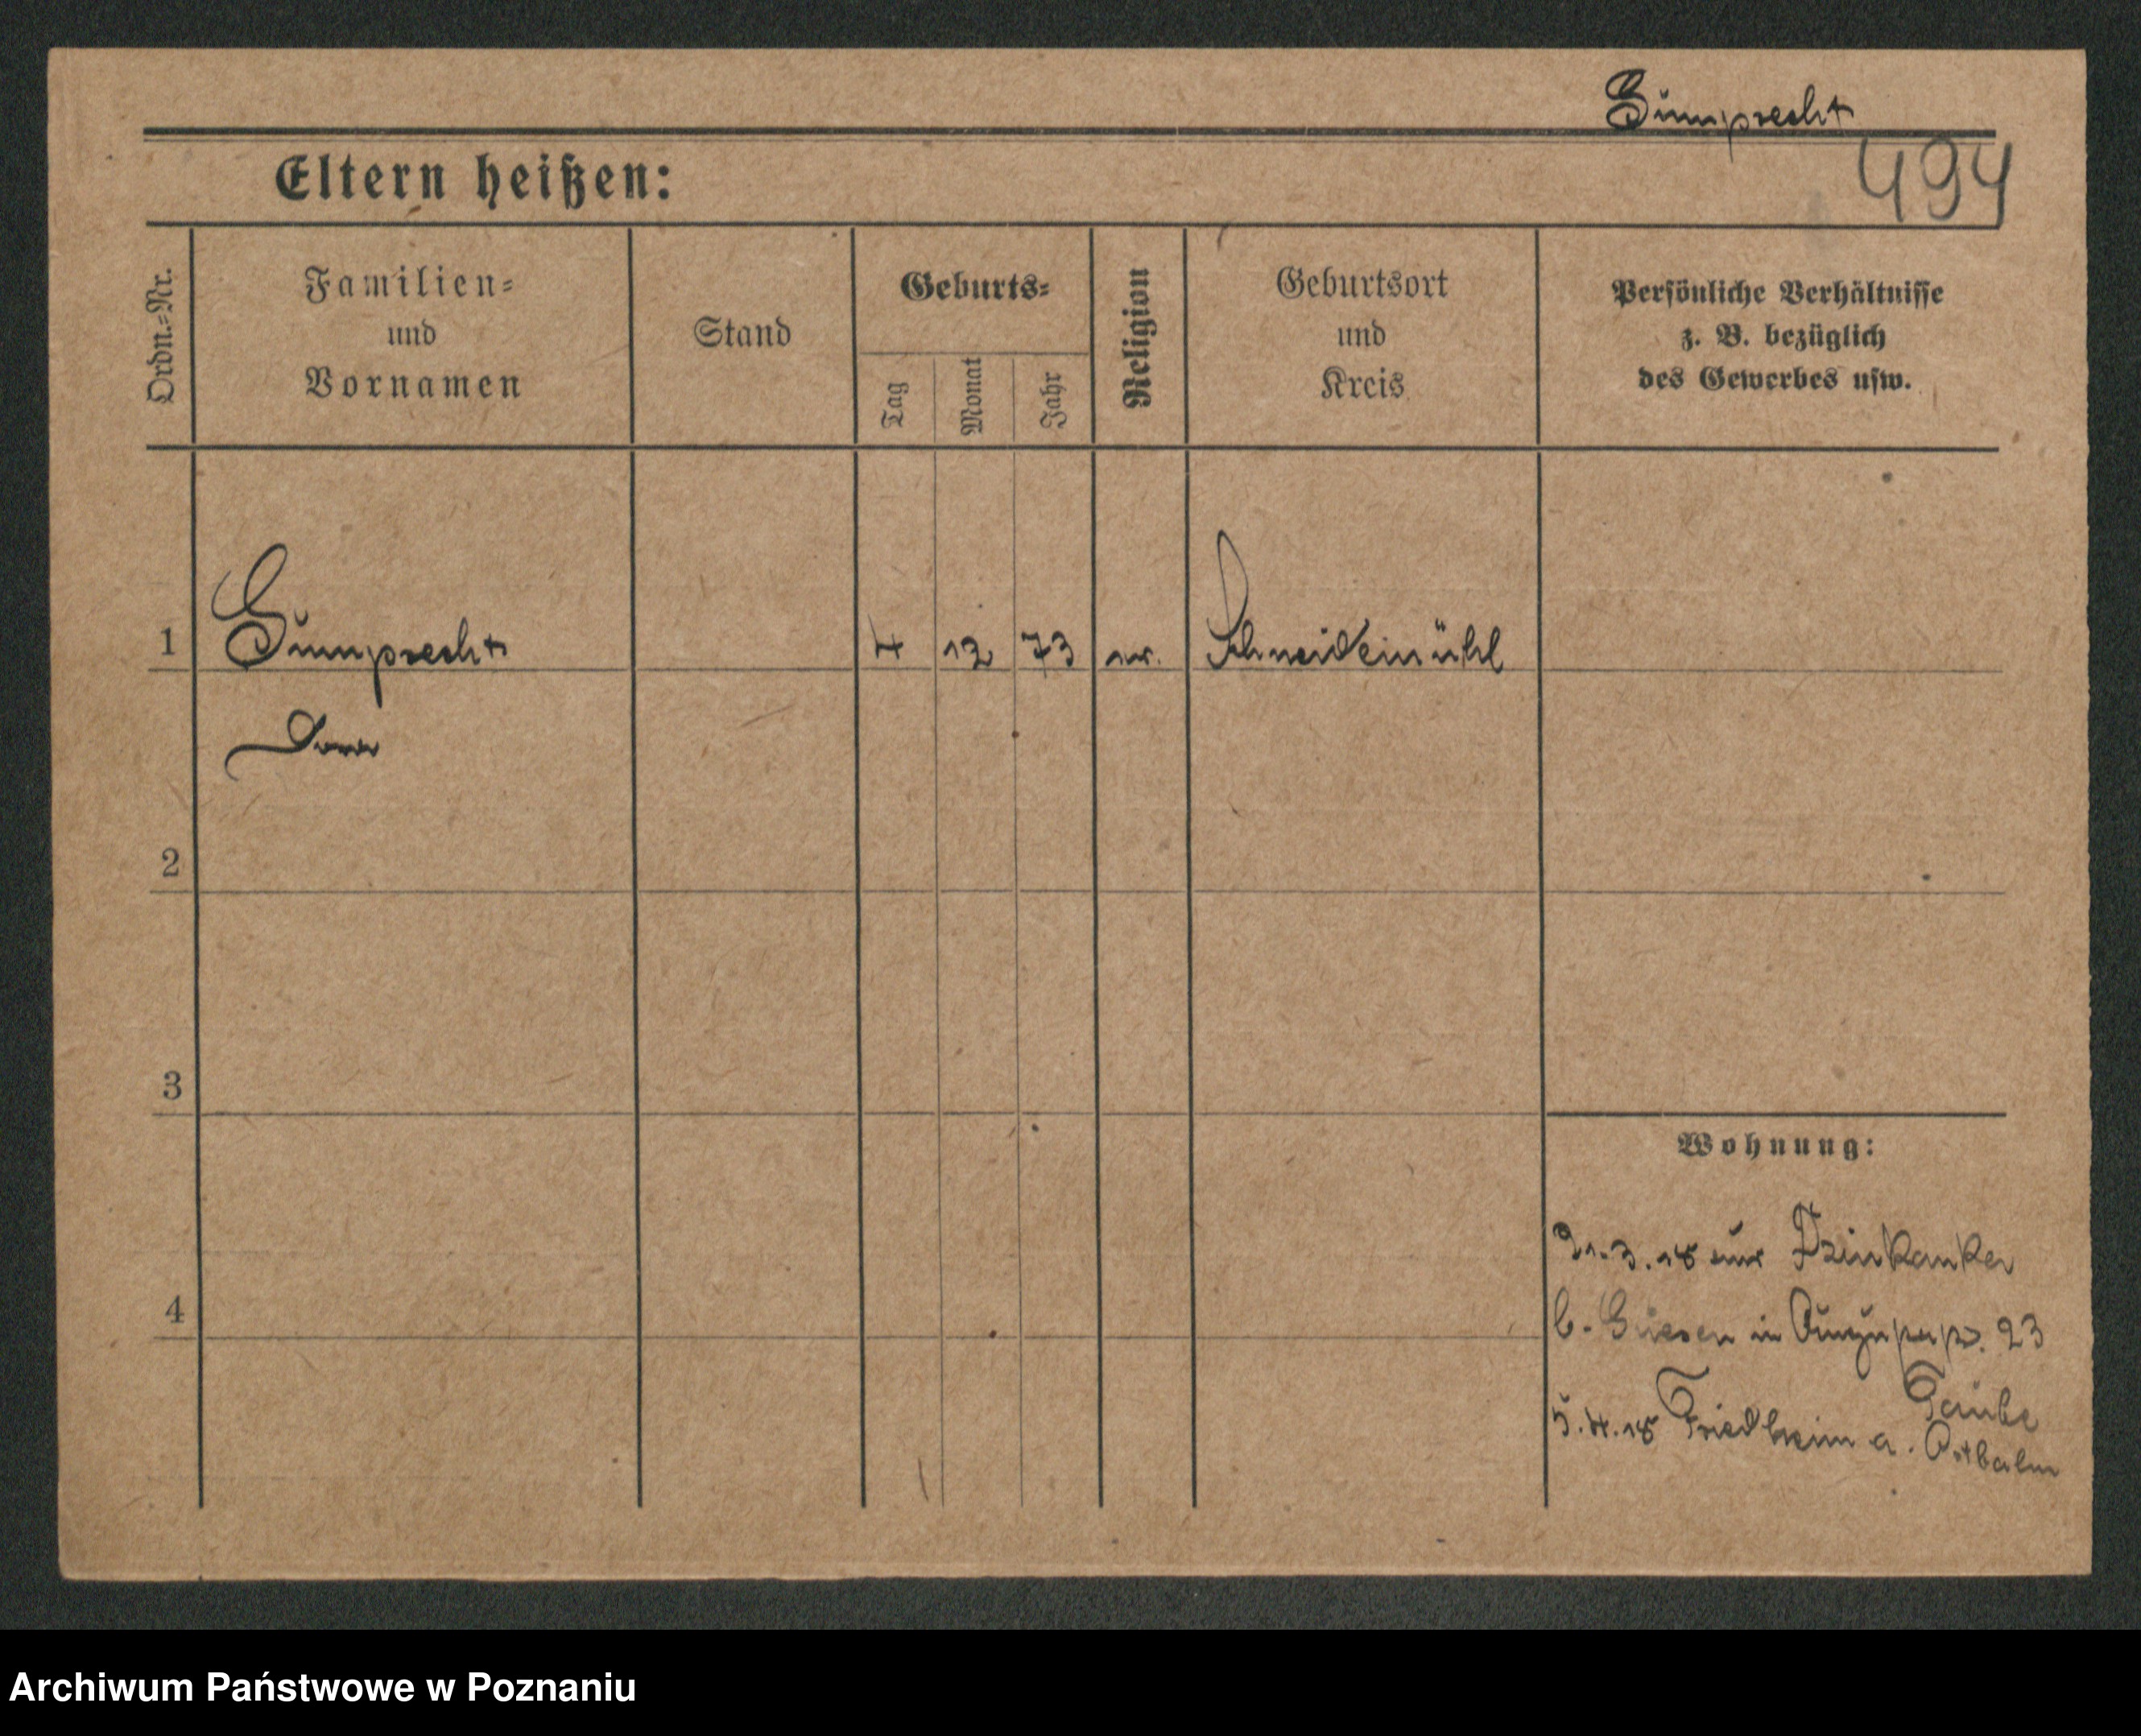 Gumprecht
494
Eltern heißen:
Ordn.=Nr.
Familien=
und
Vornamen
Stand
Geburts=
Tag
Monat
Jahr
Religion
Geburtsort
und
Kreis
Persönliche Verhältnisse
z. B. bezüglich
des Gewerbes usw.
1 Gumprecht 4 12 73 Schneidemühl
2
3
4
Wohnung:
21.3.18 aus
b. in 23
Taube
5.4.18 Friedheim a. Ostbahn
Archiwum Państwowe w Poznaniu